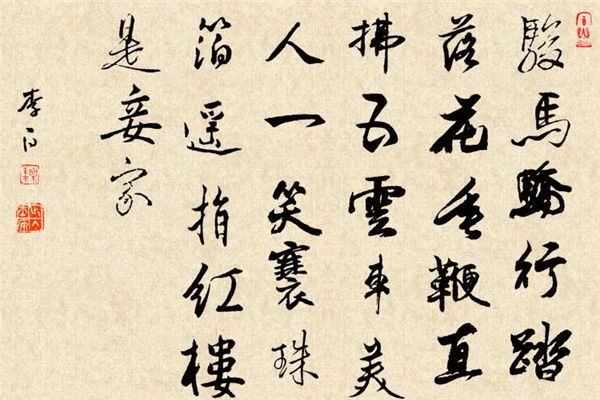 駿馬驕行踏
落花垂鞭直
拂五雲車美
人一笑褰珠
箔遙指紅樓
是妾家
李白